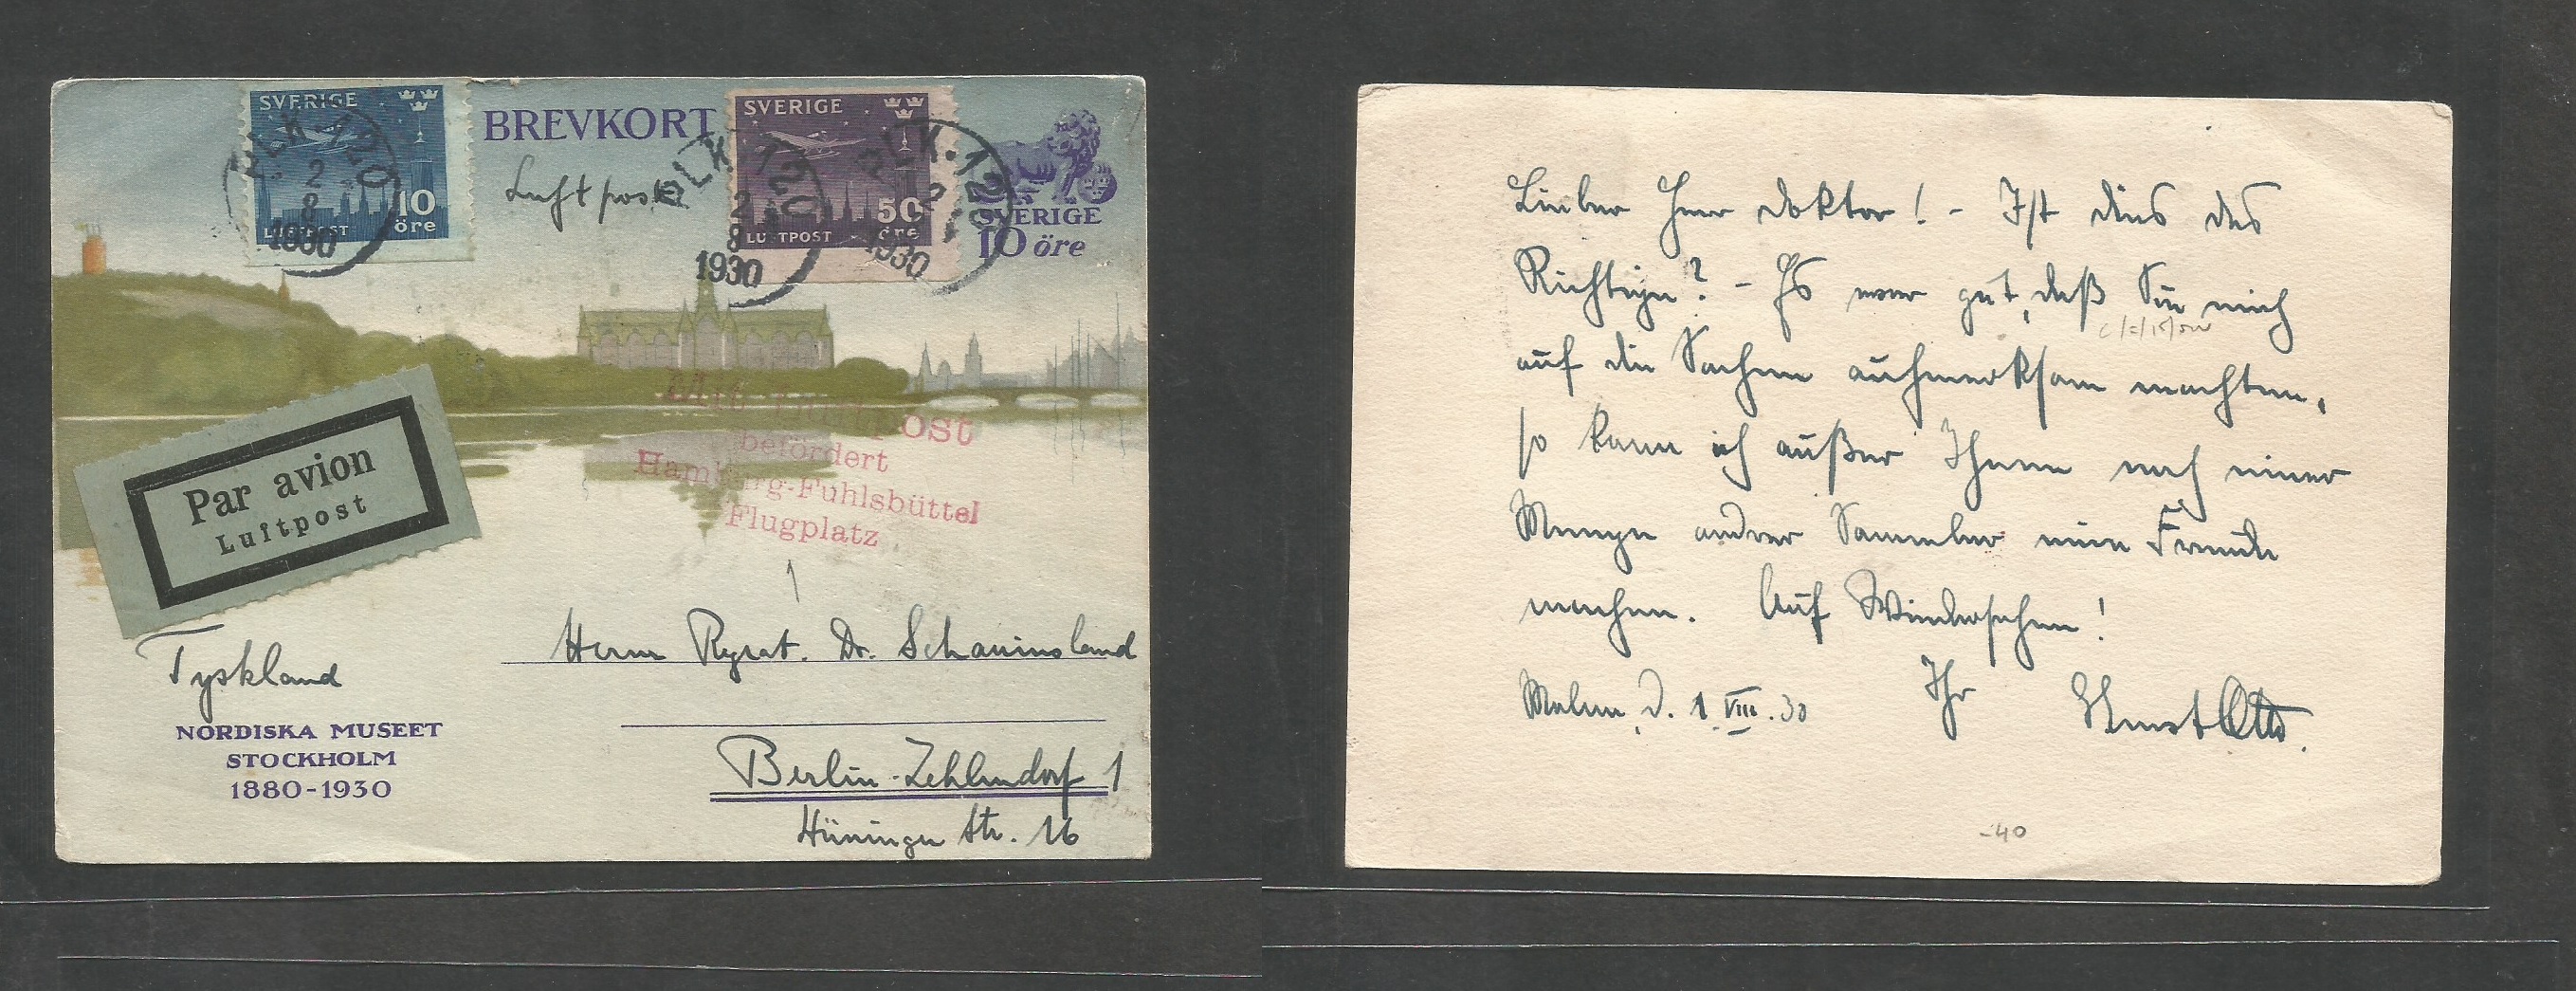 SVERIGE
LUFTPOST
10
öre
BREVKORT
Luftpost
SVERIGE
LUFTPOST
50
öre
SVERIGE
10 öre
PLK·120
2
8
1930
PLK·120
2
8
1930
PLK·120
2
1930
Par avion
Luftpost
Mit Luftpost
befördert
Hamburg-Fuhlsbüttel
Flugplatz
Tyskland
NORDISKA MUSEET
STOCKHOLM
1880-1930
Herrn Rgrat. Dr. Schauinsland
Berlin-Zehlendorf 1
Hüninger Str. 16
Lieber Herr Doktor! - Ist dies das
Richtige? - Es war gut, daß Sie mich
auf die Sachen aufmerksam machten,
so kann ich außer Ihnen noch einer
Menge andrer Sammler eine Freude
machen. Auf Wiedersehen!
Malmö, d. 1. VIII. 30 Ihr Ernst Otto.
-40